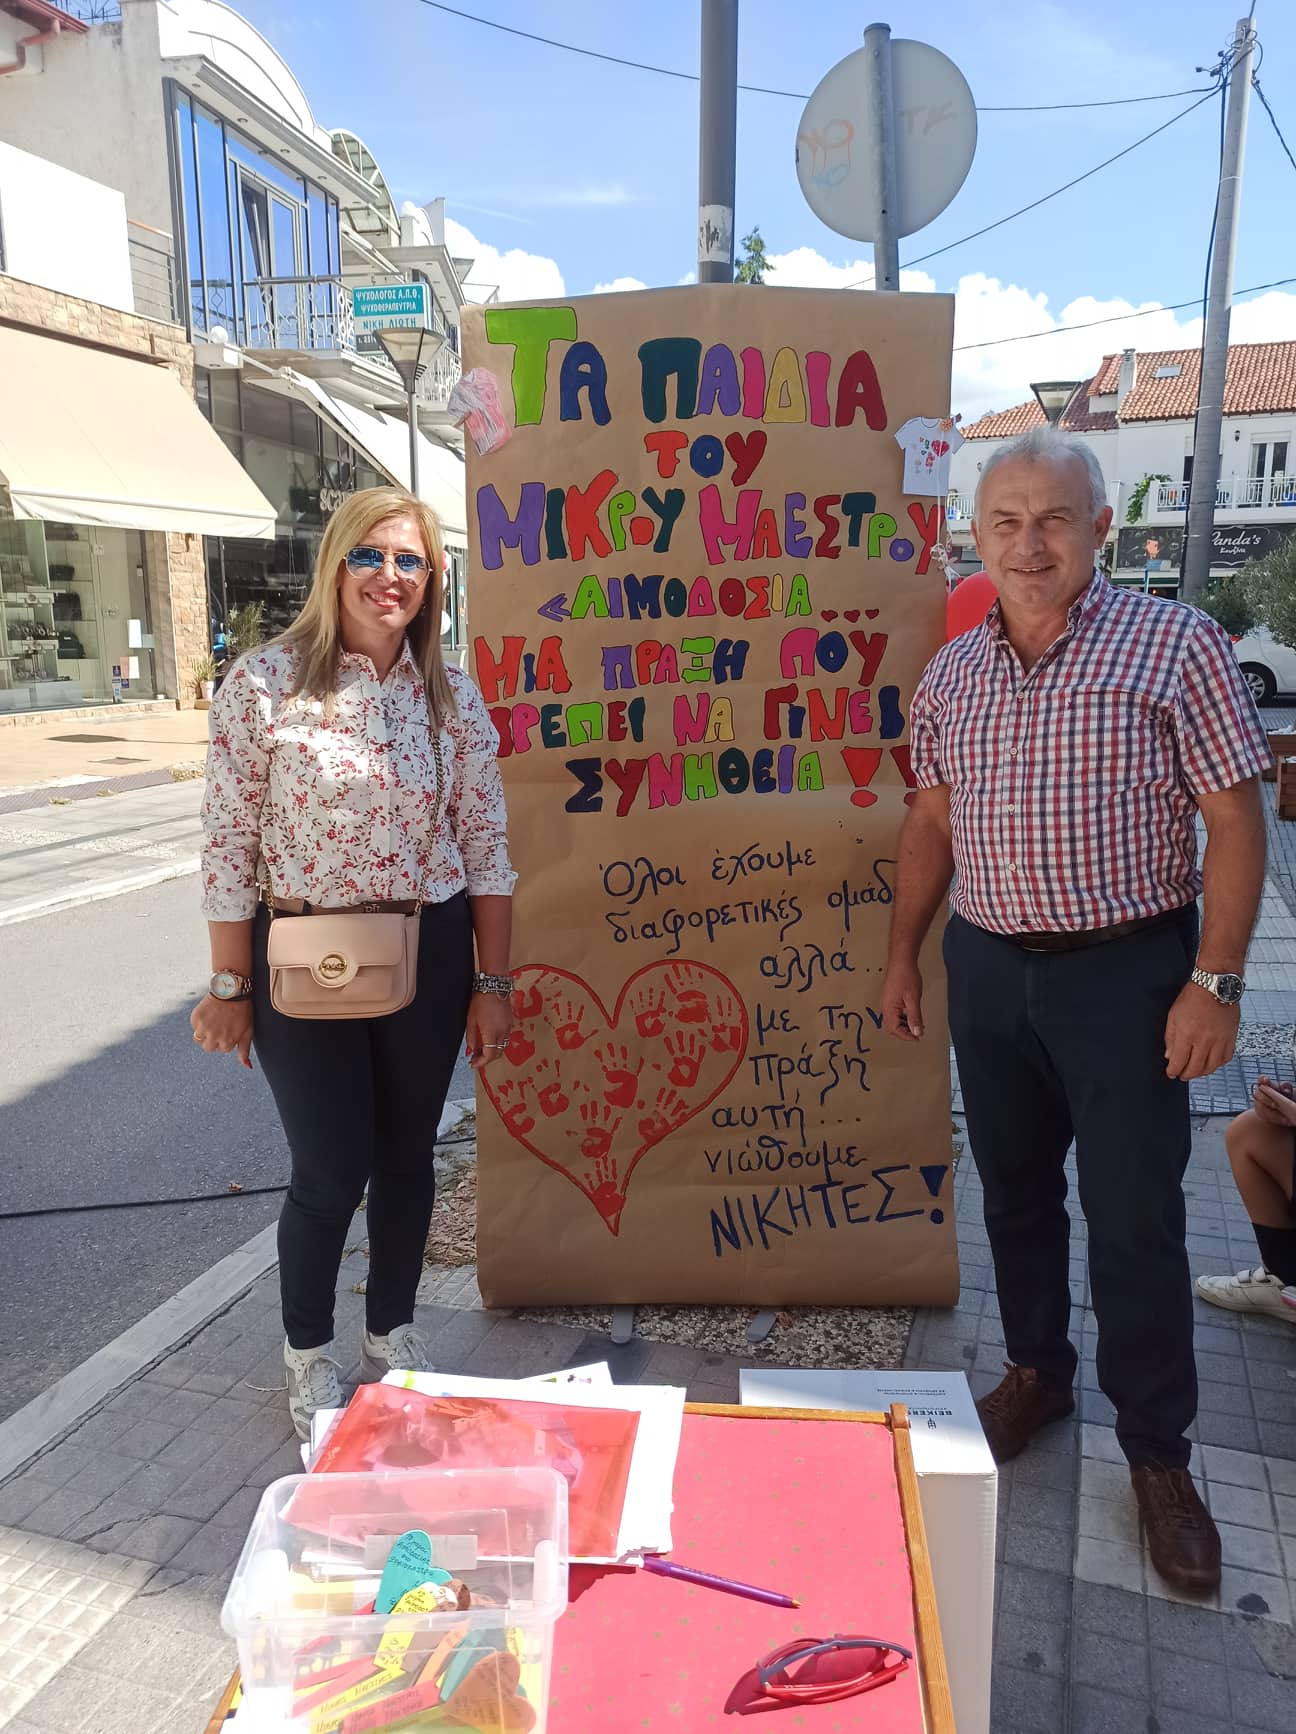 ΨΥΧΟΛΟΓΟΣ Α.Π.Θ.
ΨΥΧΟΘΕΡΑΠΕΥΤΡΙΑ
ΝΙΚΗ ΛΙΩΤΗ
ΤΑ ΠΑΙΔΙΑ
ΤΟΥ
ΜΙΚΡΟΥ ΜΑΕΣΤΡΟΥ
«ΑΙΜΟΔΟΣΙΑ...
ΜΙΑ ΠΡΑΞΗ ΠΟΥ
ΠΡΕΠΕΙ ΝΑ ΓΙΝΕΙ
ΣΥΝΗΘΕΙΑ!!
Όλοι έχουμε
διαφορετικές ομάδ
αλλά...
με την
πράξη
αυτή...
νιώθουμε
ΝΙΚΗΤΕΣ!
Panda's
BEIKERS